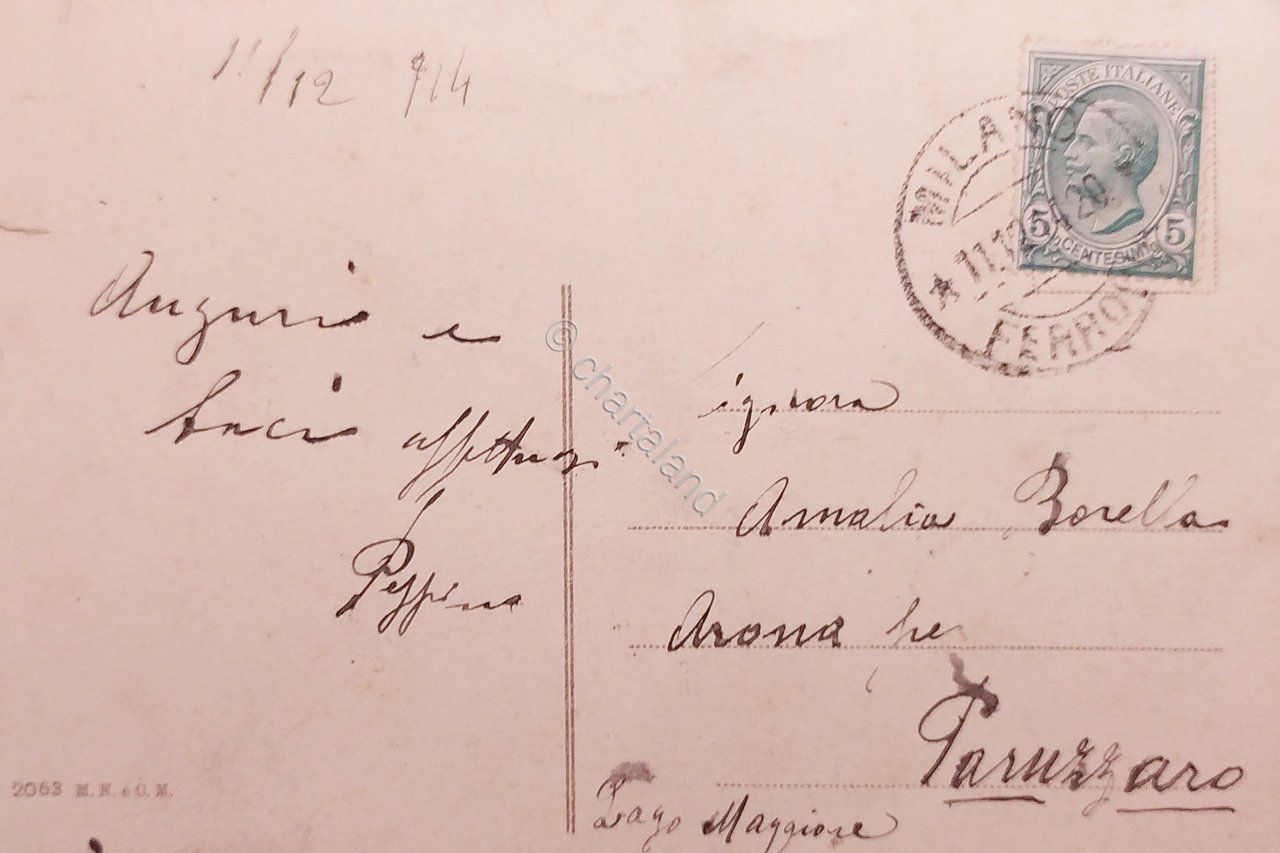 11/12 914
POSTE ITALIANE
5 5
CENTESIMI
MILANO
* 11.12
20
FERROVIA
Auguri e
baci affettuosi
Peppina
Signora
Amalia Borella
Arona per
Paruzzaro
Lago Maggiore
2063 M. N. e C. M.
© chartaland